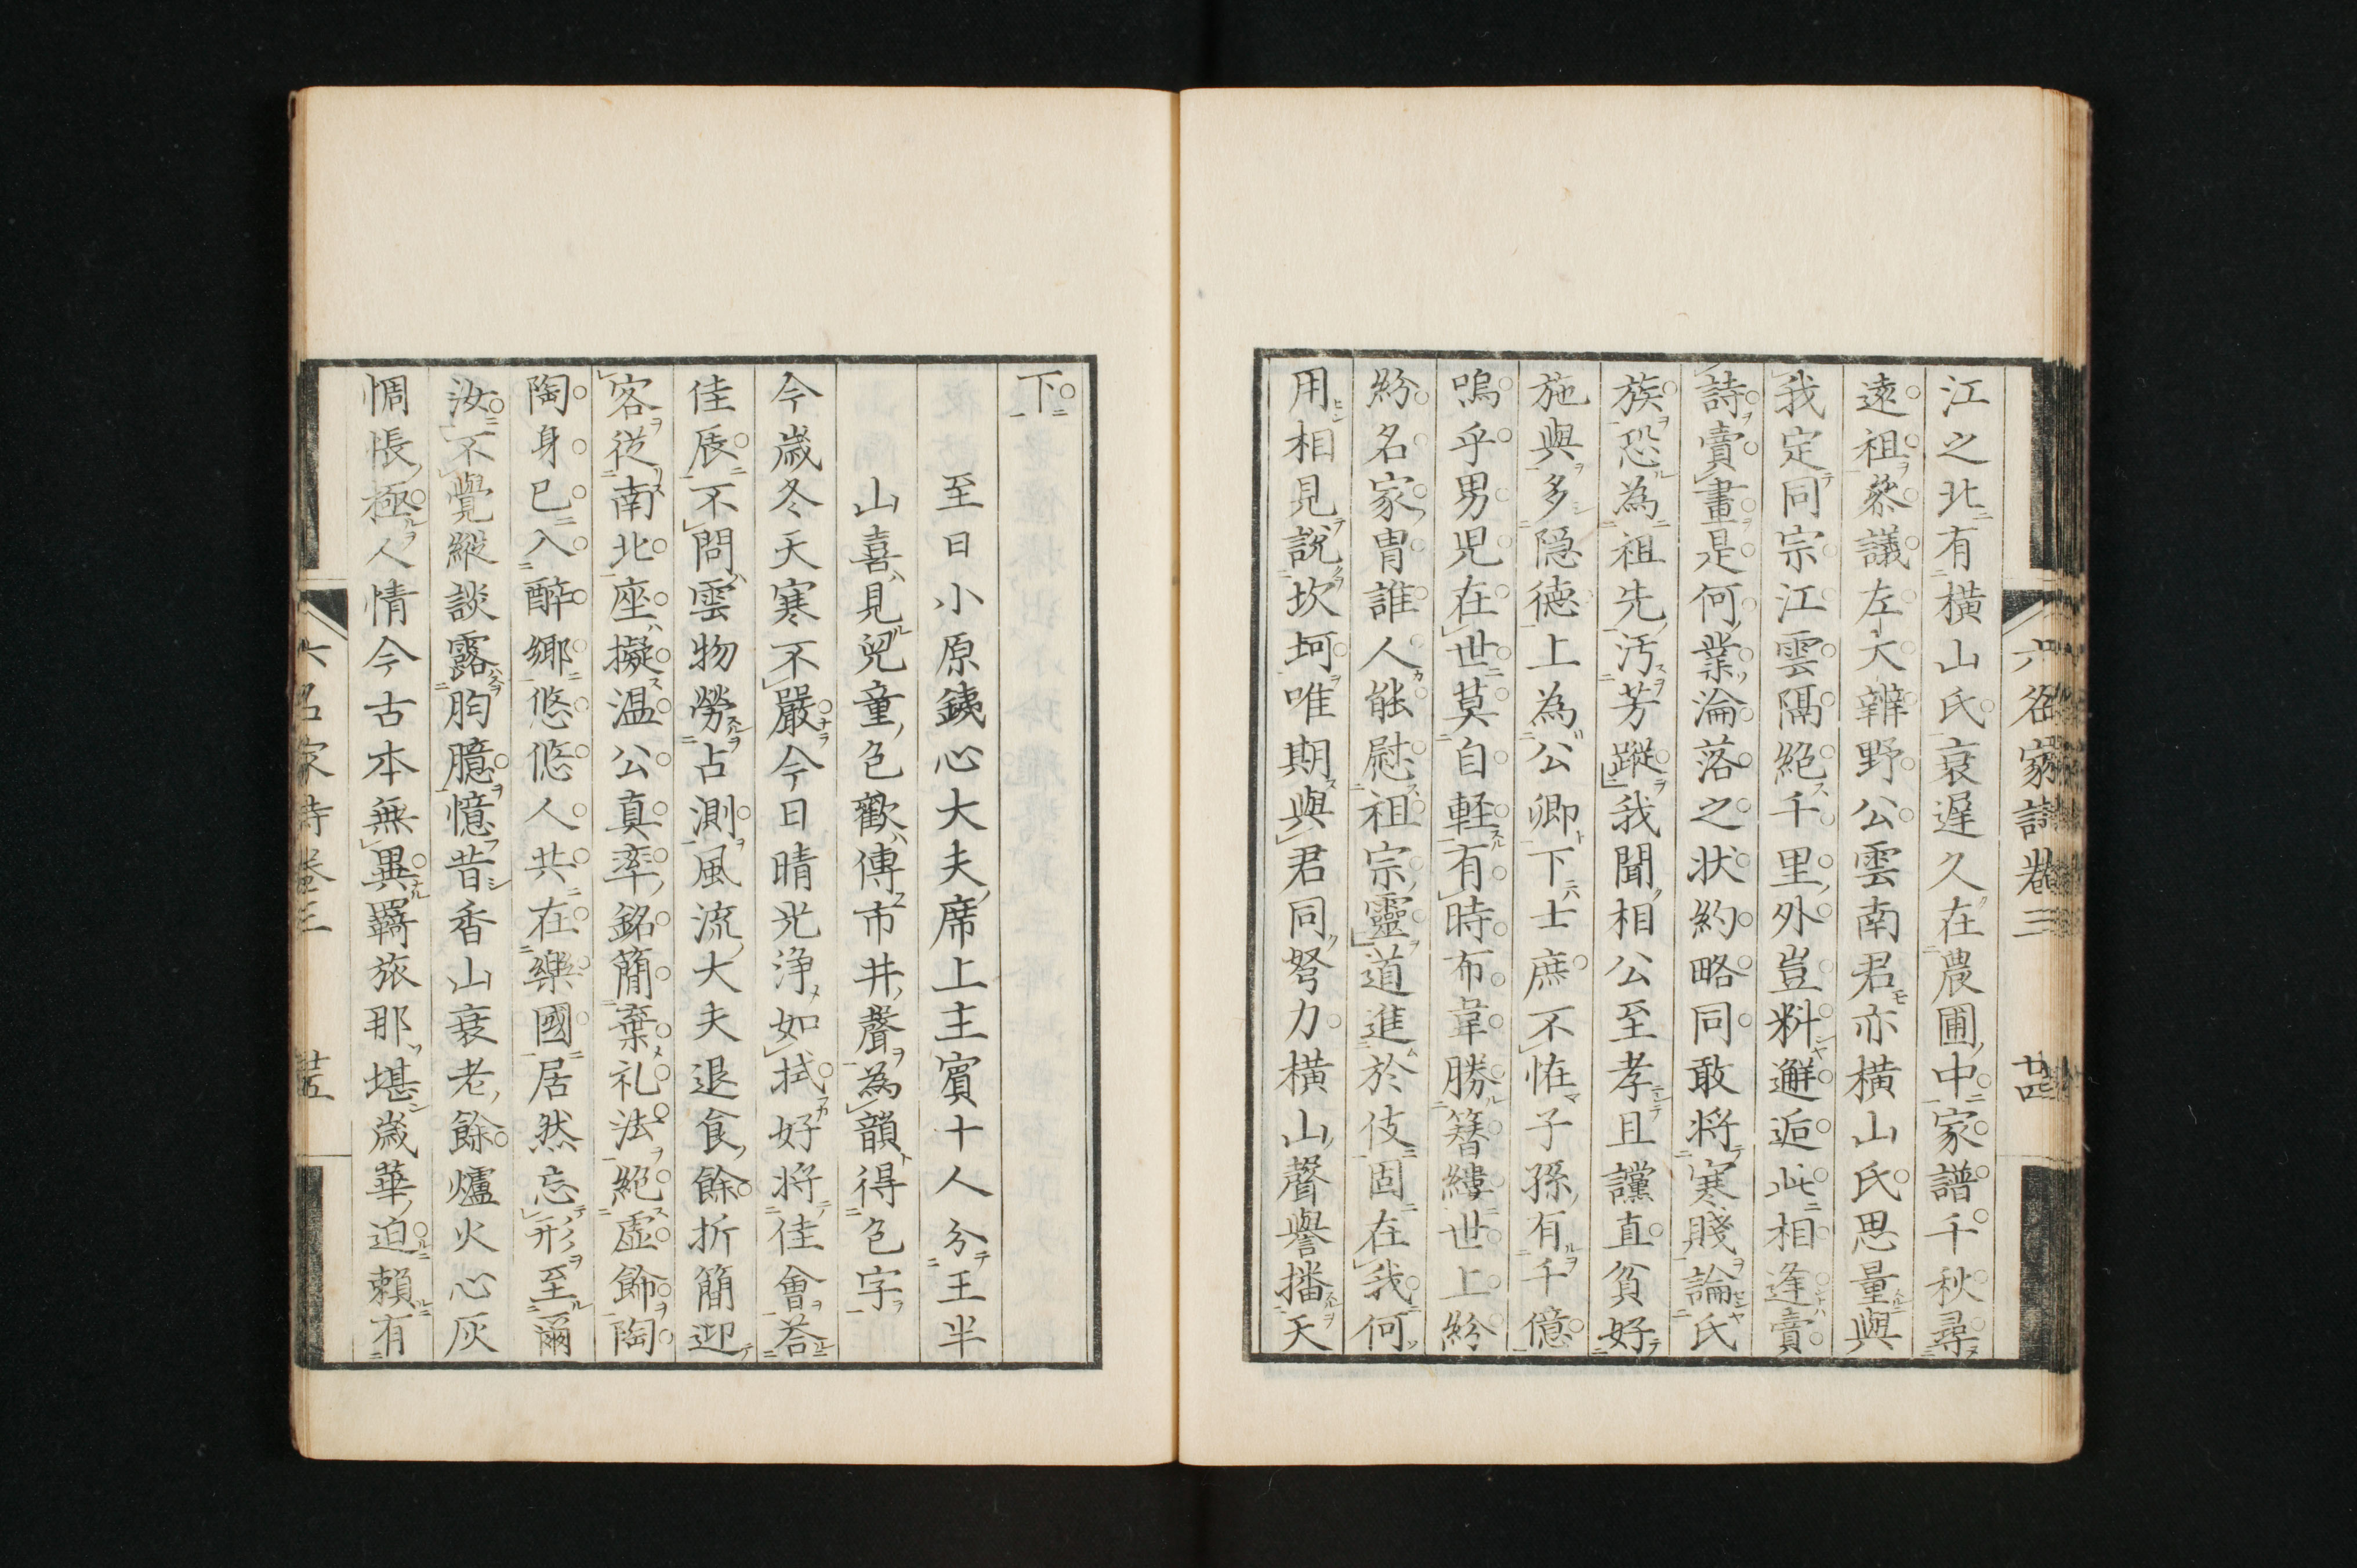 六名家詩巻三　廿四
江之北有橫山氏衰遲久在農圃中家譜千秋尋
遠祖參議左大辨野公雲南君亦橫山氏思量與
我定同宗江雲隔絕千里外豈料邂逅此相逢賣
詩賣畫是何業淪落之狀約略同敢將寒賤論氏
族恐為祖先汚芳蹤我聞相公至孝且讜直貧好
施與多隱德上為公卿下士庶不恠子孫有千億
嗚乎男児在世莫自軽有時布韋勝簪纓世上紛
紛名家冑誰人能慰祖宗靈道進於伎固在我何
用相見說坎坷唯期與君同努力橫山聲譽播天
下
至日小原鐵心大夫席上主賓十人分王半
山喜見兒童色歡傳市井聲為韻得色字
今歲冬天寒不嚴今日晴光浄如拭好將佳會荅
佳辰不問雲物勞占測風流大夫退食餘折簡迎
客從南北座擬溫公真率銘簡棄礼法絕虛飾陶
陶身已入醉鄉悠悠人共在樂國居然忘形至爾
汝不覺縱談露胷臆憶昔香山衰老餘爐火心灰
惆悵極人情今古本無異羇旅那堪歲華迫賴有
六名家詩巻三　廿五